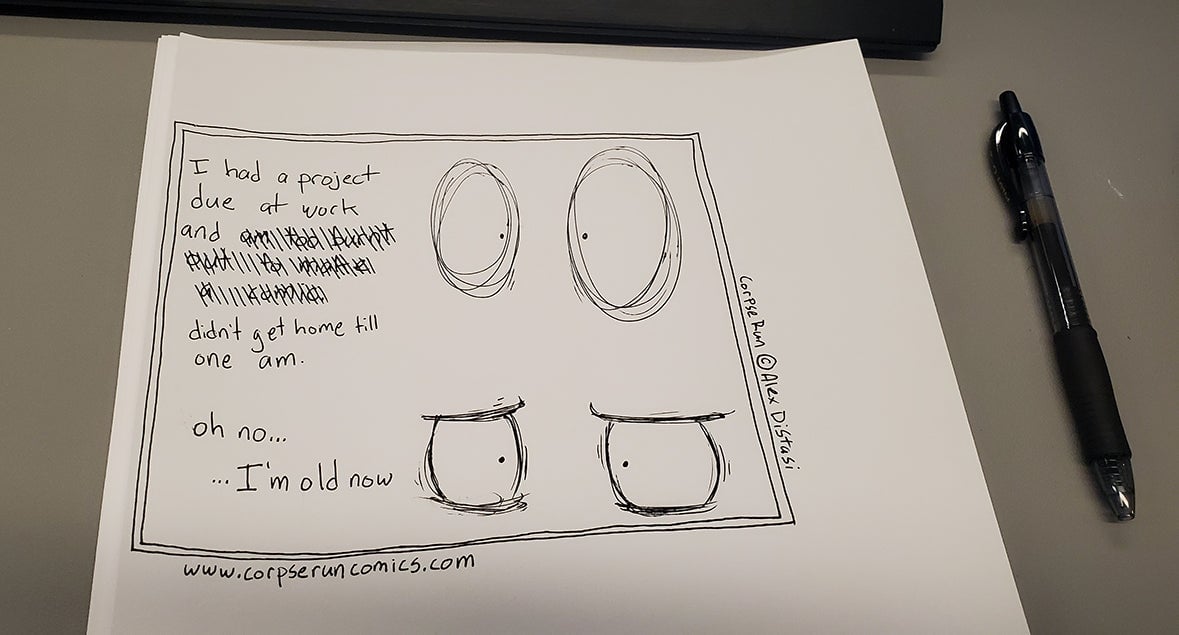 I had a project
due at work
and
didn't get home till
one am.
oh no...
...I'm old now
Corpse Run © Alex DiStasi
www.corpseruncomics.com